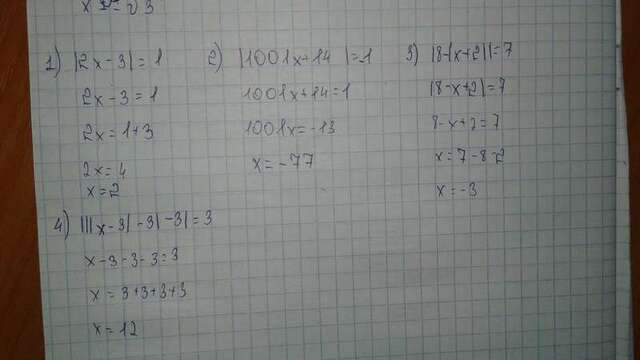 1) |2x-3|=1
2x-3=1
2x=1+3
2x=4
x=2
2) |1001x+14|=1
1001x+14=1
1001x=-13
x=-77
3) |8-|x+2||=7
|8-x+2|=7
8-x+2=7
x=7-8-2
x=-3
4) |||x-3|-3|-3|=3
x-3-3-3=3
x=3+3+3+3
x=12